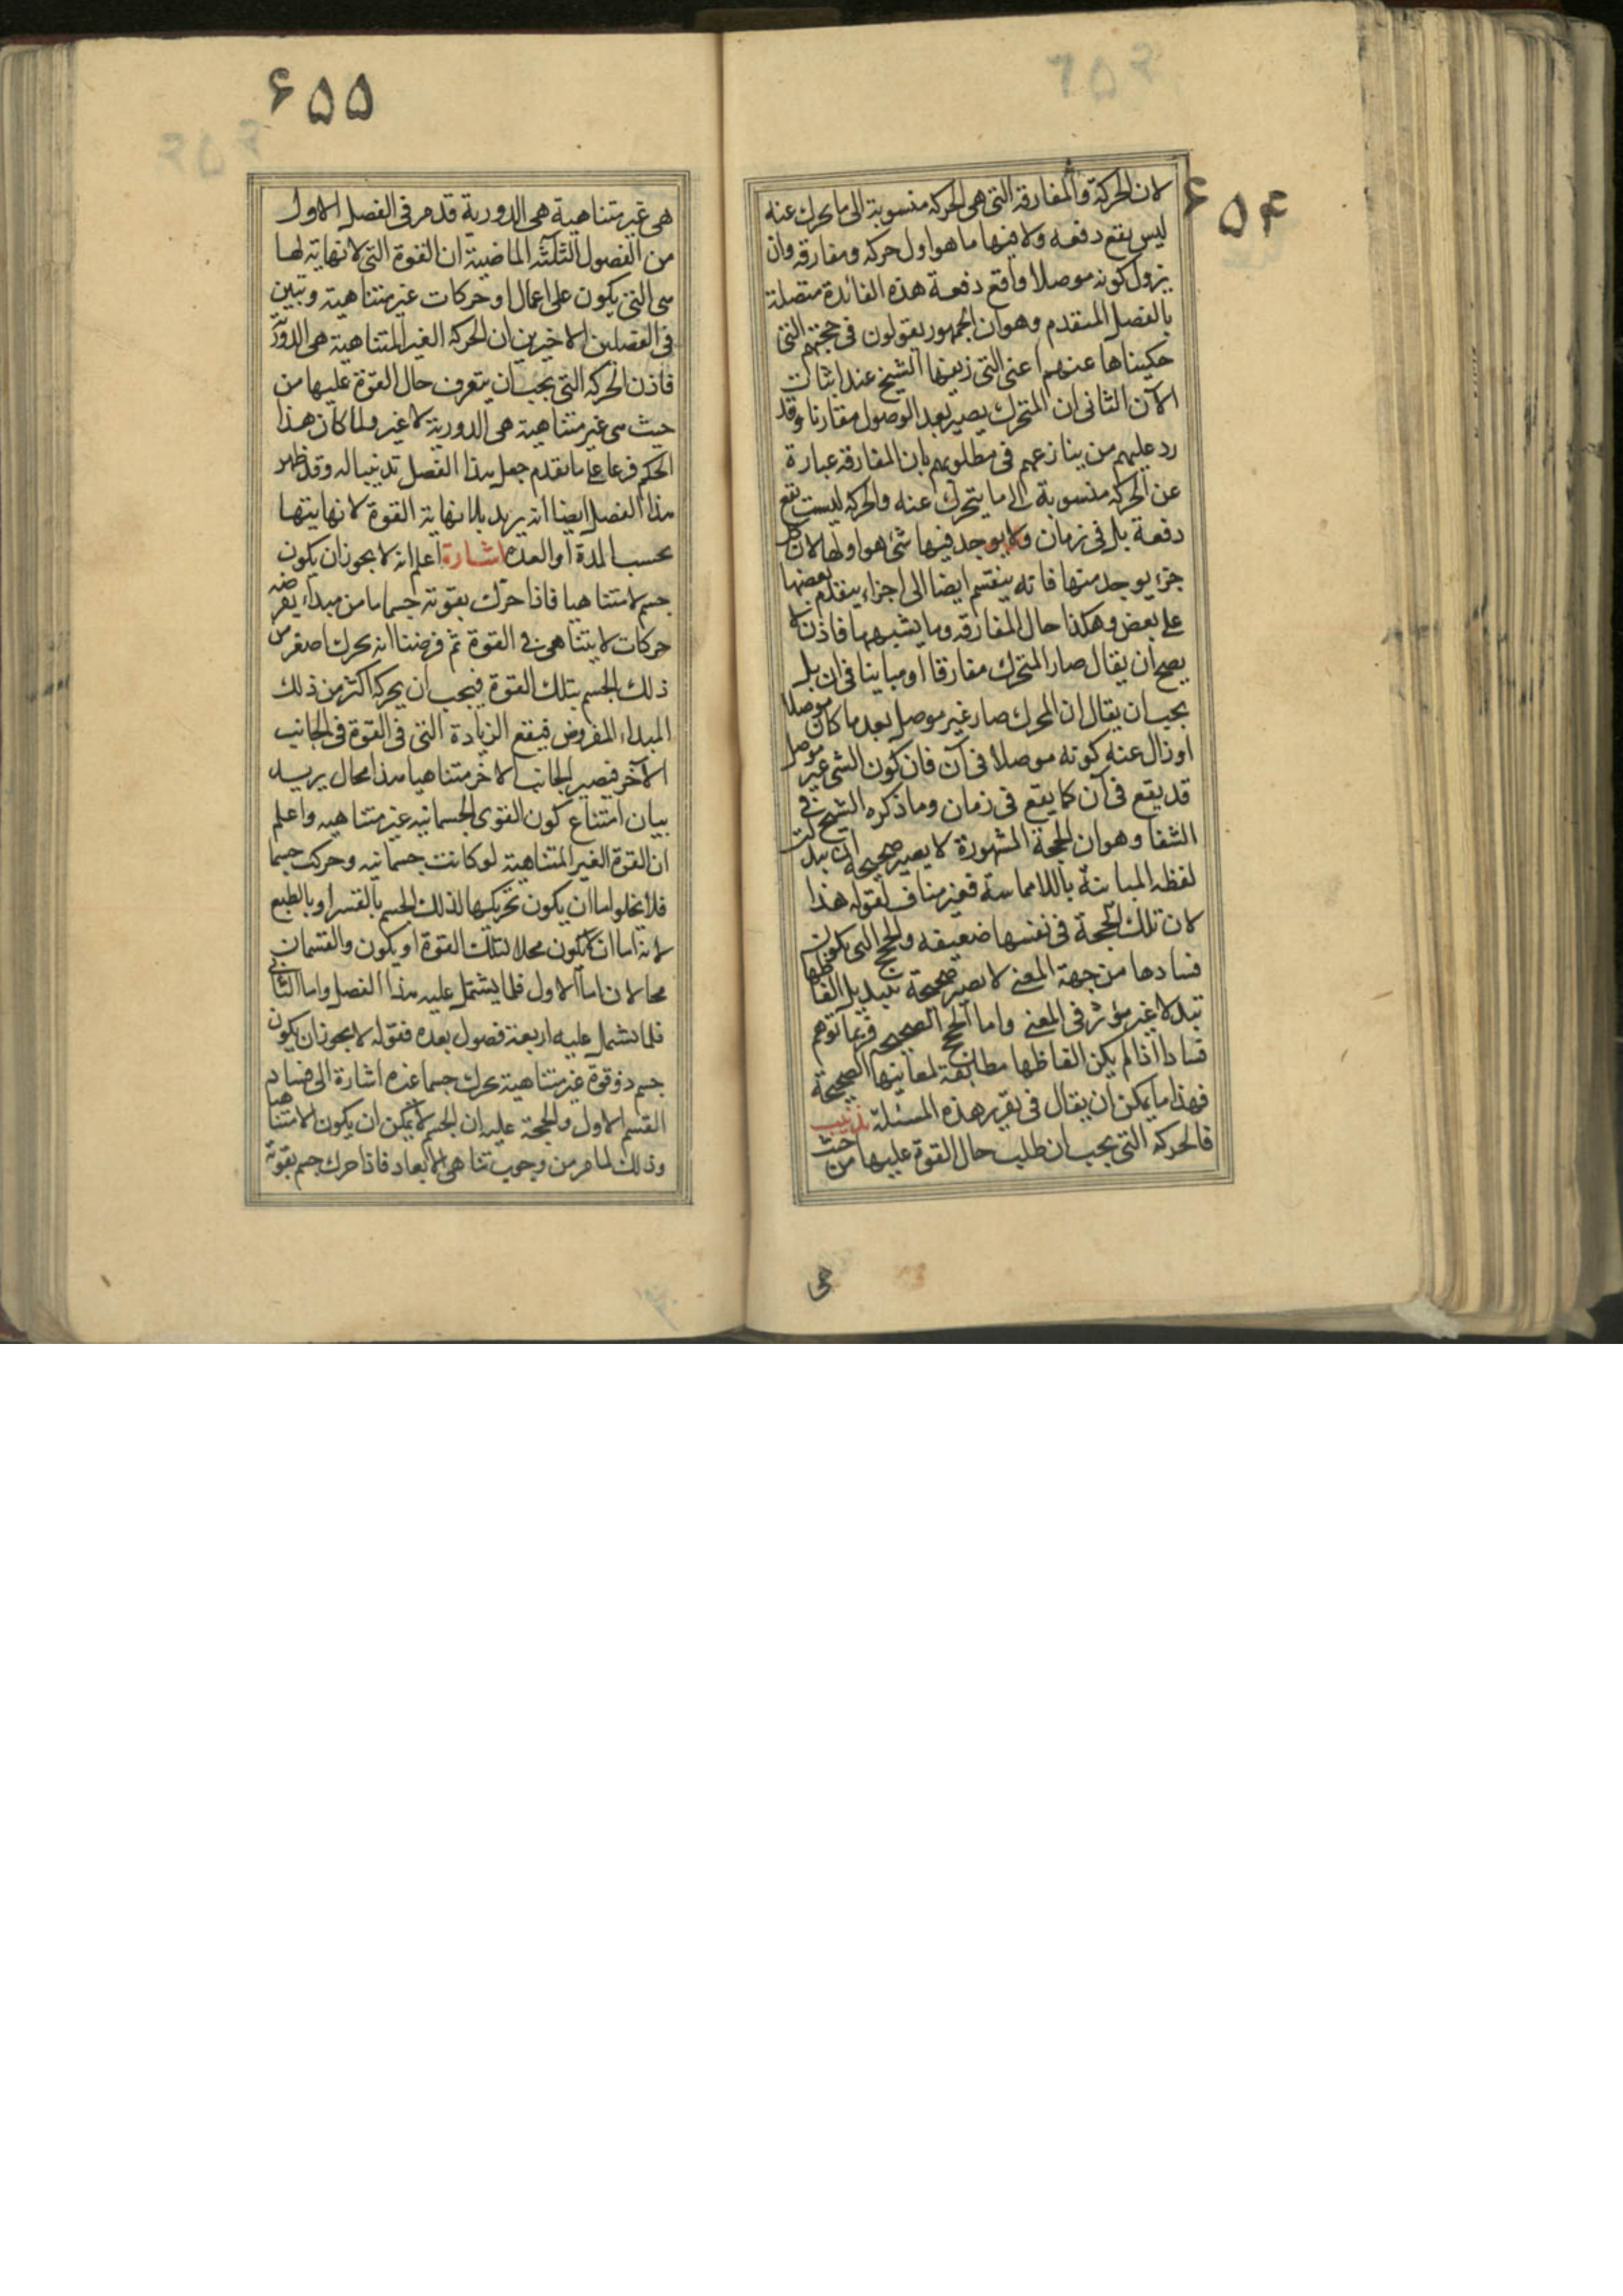 ۶۵۴
لان الحركة والمفارقة التى هى الحركه منسوبة الى ما يحرك عنه
ليس يقع دفعه ولا فيها ما هو اول حركه ومفارقه وان
يزول كونه موصلا واقع دفعة هذه الفائدة متصلة
بالفصل المتقدم وهو ان الجمهور يقولون فى حجتهم التى
حكيناها عنهم اعنى التى زيفها الشيخ عند اثبات
الآن الثانى ان المتحرك يصير بعد الوصول مفارنا وقد
رد عليهم من ينازعهم فى مطلوبهم بان المفارقه عبارة
عن الحركه منسوبة الى ما يتحرك عنه والحركه ليست تقع
دفعة بل فى زمان ولا يوجد فيها شئ هو اولها لان كل
جزء يوجد منها فانه ينقسم ايضا الى اجزاء يتقدم بعضها
على بعض وهكذا حال المفارقه وما يشبهها فاذن لا
يصح ان يقال صار المتحرك مفارقا او مباينا فى ان بل
يجب ان يقال ان المحرك صار غير موصل بعد ما كان موصلا
او زال عنه كونه موصلا فى آن فان كون الشى غير موصل
قد يقع فى آن كما يقع فى زمان وما ذكره الشيخ فى
الشفا وهو ان الحجة المشهورة لا يصير صحيحة ان بدلت
لفظه المباينة باللامماسة فغير مناف لقوله هذا
لان تلك الحجة فى نفسها ضعيفه والحجج التى يكون
فسادها من جهة المعنى لا تصير صحيحة بتبديل الفاظها
تبدلا غير مؤثر فى المعنى واما الحجج الصحيحه فربما توهم
فسادا اذا لم يكن الفاظها مطابقة لمعانيها الصحيحة
فهذا ما يمكن ان يقال فى تقرير هذه المسئلة تذنيب
فالحركه التى يجب ان طلب حال القوة عليها من حيث
هى
۶۵۵
هى غير متناهية هى الدورية قد مر فى الفصل الاول
من الفصول الثلثه الماضية ان القوة التى لا نهاية لها
هى التى يكون على اعمال او حركات غير متناهية وتبين
فى الفصلين الاخيرين ان الحركه الغير المتناهية هى الدورية
فاذن الحركه التى يجب ان يتعرف حال القوة عليها من
حيث هى غير متناهية هى الدورية لا غير ولما كان هذا
الحكم فرعا على ما تقدم جعل هذا الفصل تذنيبا له وقد ظهر
هذا الفصل ايضا انه يريد بلا نهاية القوة لا نهايتها
بحسب المدة او العده اشارة اعلم انه لا يجوز ان يكون
جسم لا متناهيا فاذا حرك بقوته جسما ما من مبداء يفرضه
حركات لا يتناهى فى القوة ثم فرضنا انه يحرك اصغر من
ذلك الجسم بتلك القوة فيجب ان يحركه اكثر من ذلك
المبداء المفروض فيقع الزيادة التى فى القوة فى الجانب
الآخر فيصير الجانب الاخر متناهيا هذا محال يريد
بيان امتناع كون القوى الجسمانيه غير متناهيه واعلم
ان القوة الغير المتناهية لو كانت جسمانيه وحركت جسما
فلا يخلوا اما ان يكون تحريكها لذلك الجسم بالقسر او بالطبع
لانه اما ان لا يكون محلا لتلك القوة او يكون والقسمان
محالان اما الاول فلما يشتمل عليه هذا الفصل واما الثانى
فلما تشتمل عليه اربعة فصول بعده فقوله لا يجوز ان يكون
جسم ذو قوة غير متناهية يحرك جسما غيره اشارة الى فساد
القسم الاول والحجة عليه ان الجسم لا يمكن ان يكون لا متناهيا
وذلك لما مر من وجوب تناهى الابعاد فاذا حرك جسم بقوته